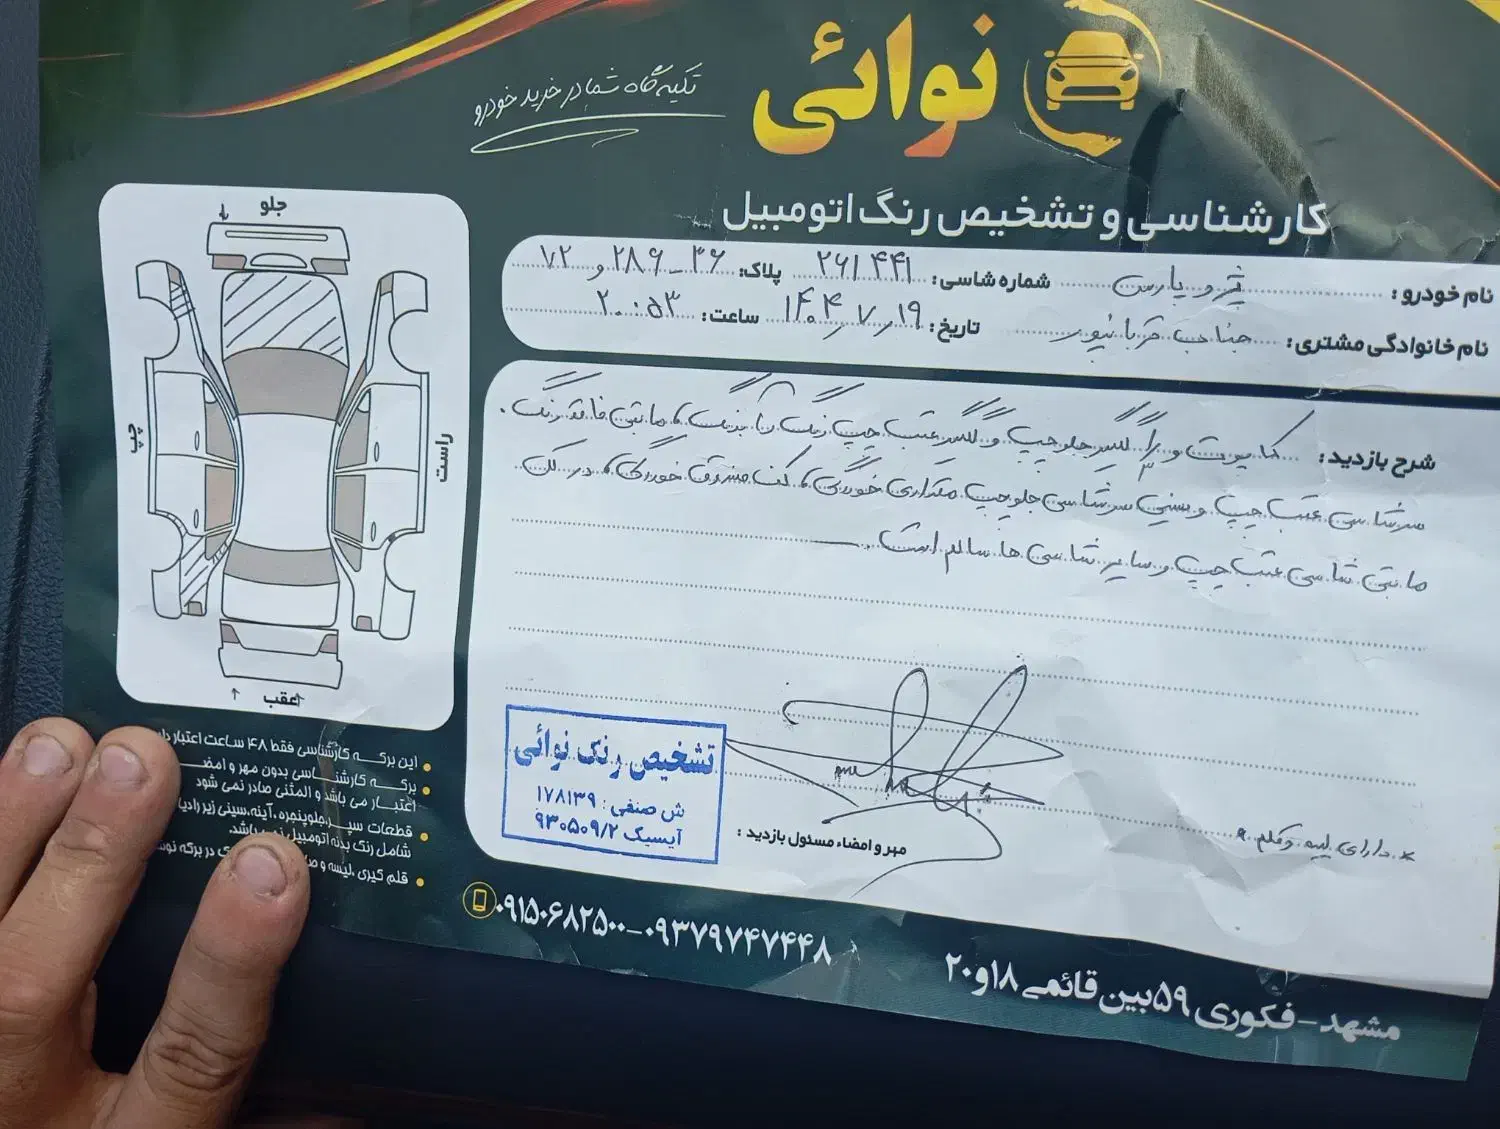 نوائی
تکیه گاه شما در خرید خودرو
کارشناسی و تشخیص رنگ اتومبیل
نام خودرو: پژو پارس شماره شاسی: ۲۶۱۴۴۱ پلاک: ۳۶-۲۸۹ و ۷۲
نام خانوادگی مشتری: جناب قربانپور تاریخ: ۱۴۰۴/۷/۱۹ ساعت: ۲۰:۵۳
شرح بازدید: کاپوت و گلگیر جلو چپ و گلگیر عقب چپ رنگ مابقی فاقد رنگ.
سرشاسی عقب چپ و سینی سرشاسی جلو چپ مقداری خوردگی، کف صندوق خوردگی، در کل
مابقی شاسی عقب چپ و سایر شاسی ها سالم است.
* دارای لیسه و قلم.
مهر و امضاء مسئول بازدید:
تشخیص رنگ نوائی
ش صنفی: ۱۷۸۱۳۹
آیسیک ۹۳۰۵۰۹/۲
جلو
چپ
راست
عقب
این برگه کارشناسی فقط ۴۸ ساعت اعتبار
برگه کارشناسی بدون مهر و امضا
اعتبار می باشد و المثنی صادر نمی شود
قطعات سپر، جلوپنجره، آینه، سینی زیر
شامل رنگ بدنه اتومبیل
قلم گیری، لیسه و در برگه
۰۹۱۵۰۶۸۲۵۰۰-۰۹۳۷۹۷۴۷۴۴۸
مشهد-فکوری ۵۹ بین قائمی ۱۸و۲۰